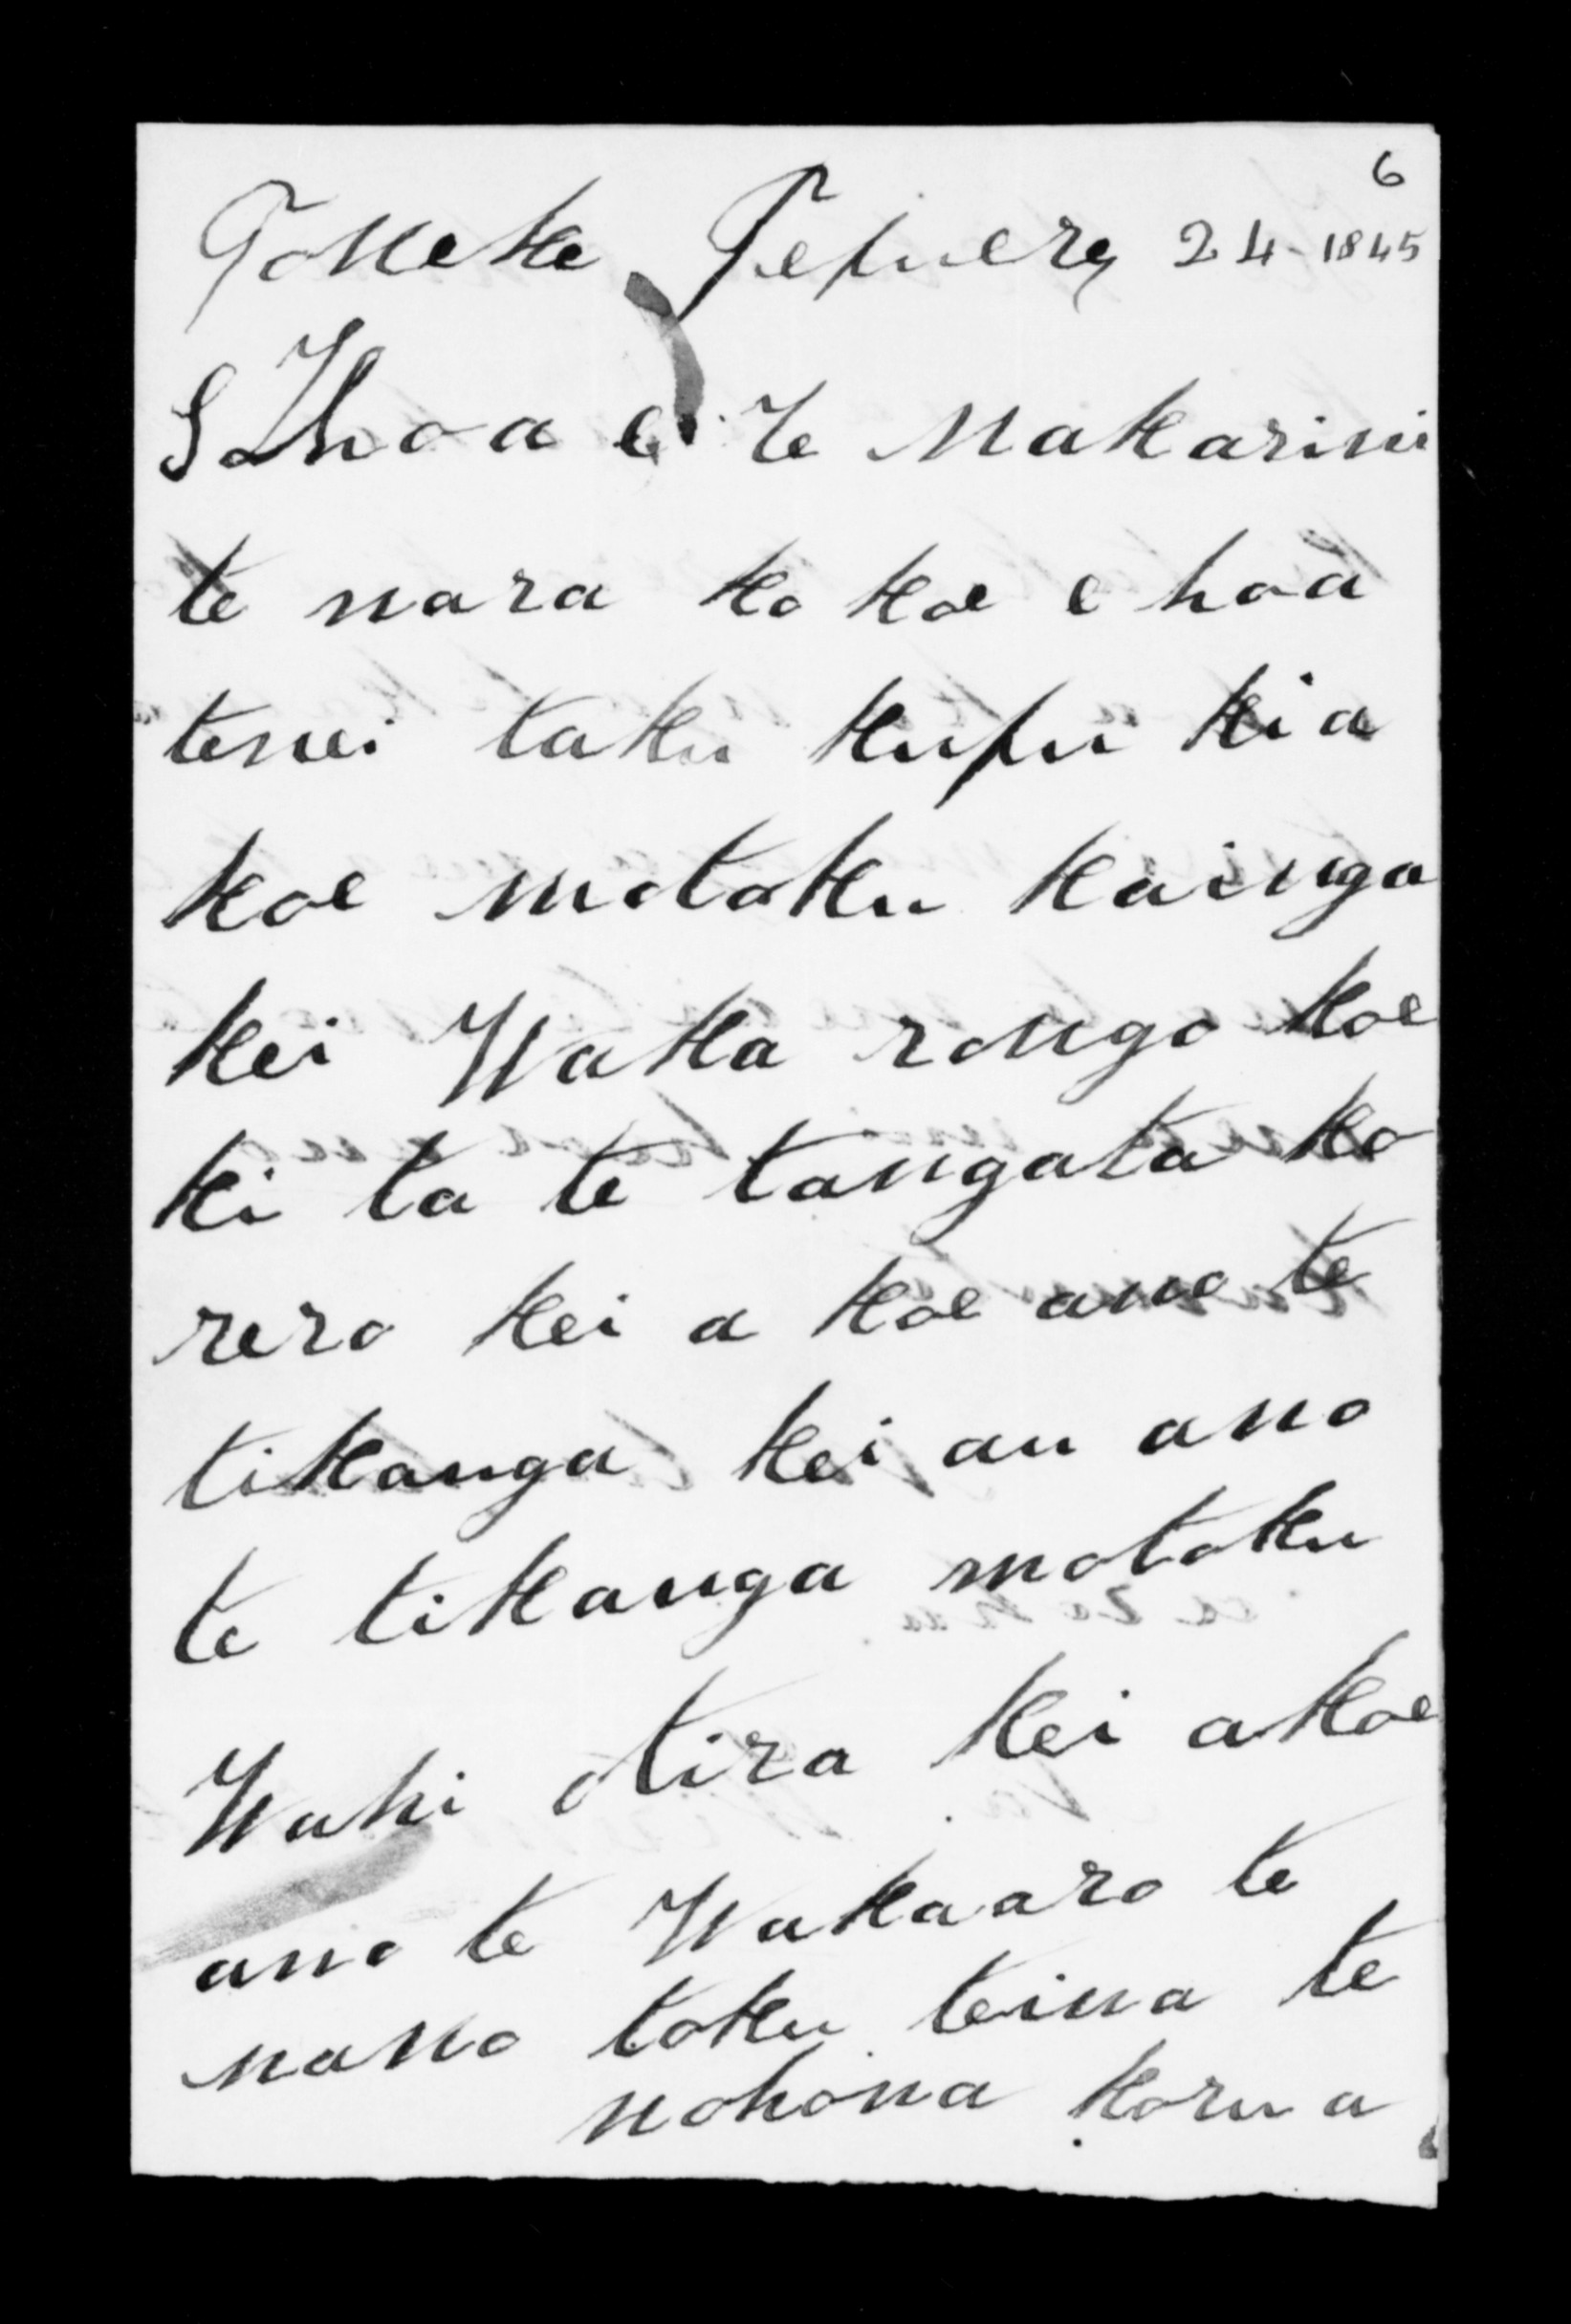 6
Poneke Pepuere 24 1845
E Ihoa e Te Makarini
te nara ko koe e hoa
tenei taku kupu kia
koe motoku kainga
kei Waka rongo koe
ki ta te tangata ko
rero kei a koe ano te
tikanga kei au ano
te tikanga motoku
Wahi otira kei akoe
ano te Wakaaro te
nano toku teina te
nohona korua